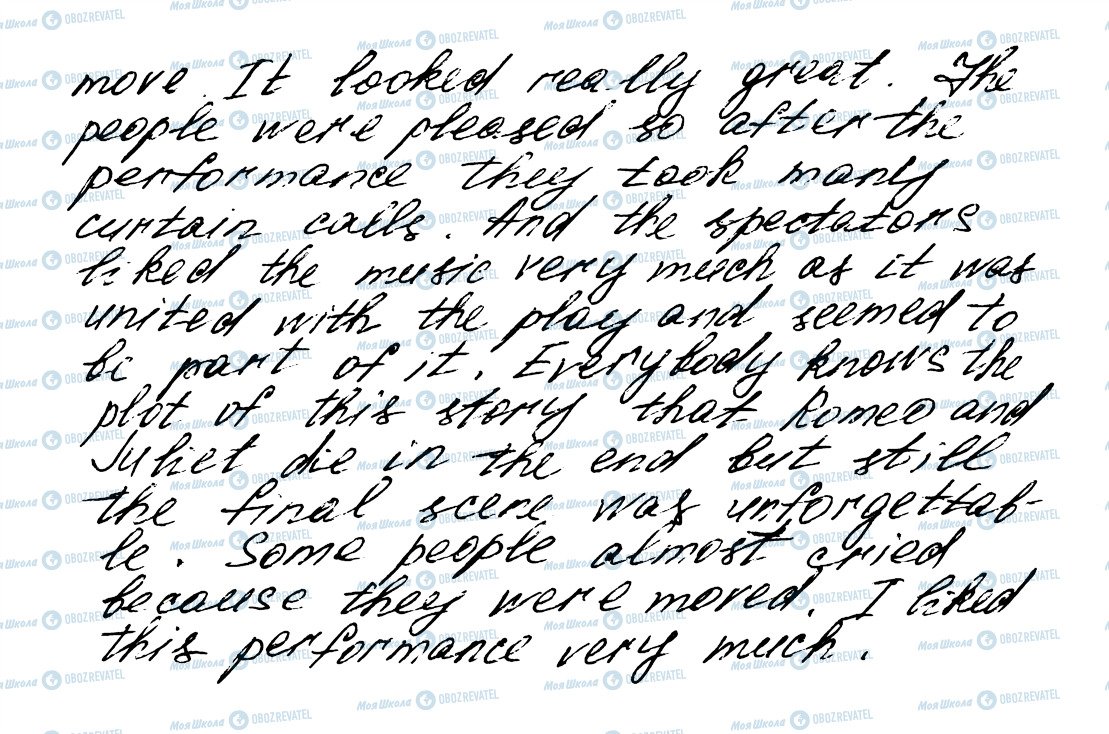 move. It looked really great. The
people were pleased so after the
performance they took many
curtain calls. And the spectators
liked the music very much as it was
united with the play and seemed to
be part of it. Everybody knows the
plot of this story that Romeo and
Juliet die in the end but still
the final scene was unforgettab-
le. Some people almost cried
because they were moved. I liked
this performance very much.
Моя Школа OBOZREVATEL